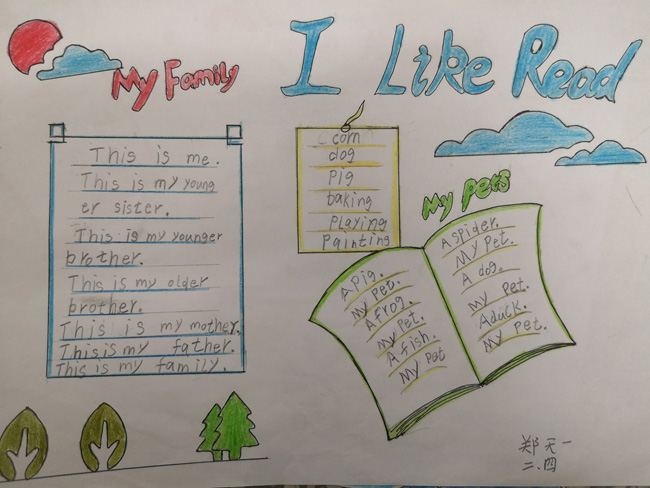 My Family
I Like Read
This is me.
This is my young
er sister.
This is my younger
brother.
This is my older
brother.
This is my mother.
This is my father.
This is my family.
corn
dog
Pig
baking
Playing
Painting
My Pets
A Pig.
My Pet.
A frog.
My Pet.
A fish.
My Pet
A spider.
My Pet.
A dog.
my Pet.
A duck.
My Pet.
郑天一
二.四